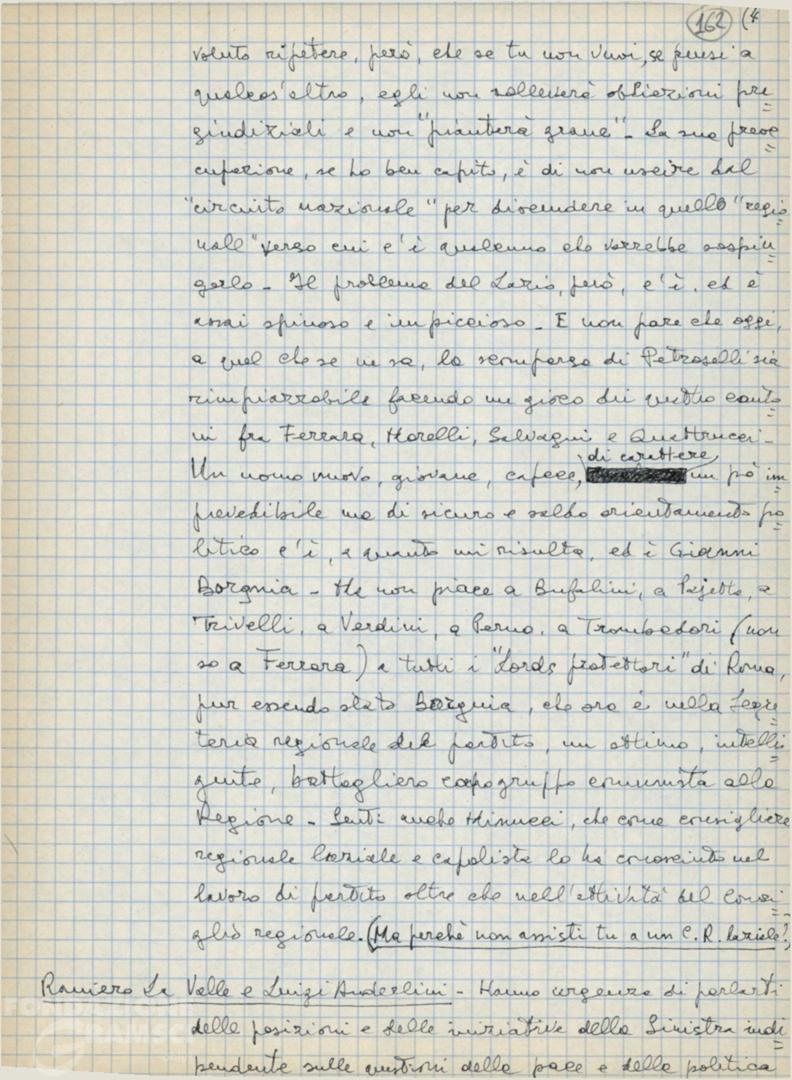 162 (4
voluto ripetere, però, che se tu non vuoi, se pensi a
qualcos'altro, egli non solleverà obbiezioni pre=
giudiziali e non "pianterà grane" - La sua preoc=
cupazione, se ho ben capito, è di non uscire dal
"circuito nazionale" per discendere in quello "regio=
nale" verso cui c'è qualcuno che vorrebbe sospin=
gerlo - Il problema del Lazio, però, c'è, ed è
assai spinoso e impiccioso - E non pare che oggi,
a quel che se ne sa, la scomparsa di Petroselli sia
rimpiazzabile facendo un gioco dei quattro canto=
ni fra Ferrara, Morelli, Salvagni e Quattrucci -
di carattere,
Un uomo nuovo, giovane, capace, un pò im=
prevedibile ma di sicuro e saldo orientamento po=
litico c'è, a quanto mi risulta, ed è Gianni
Borgnia - Ma non piace a Bufalini, a Pajetta, a
Trivelli, a Verdini, a Perna, a Trombadori (non
so a Ferrara) e tutti i "Lords protettori" di Roma,
pur essendo stato Borgnia, che ora è nella Segre=
teria regionale del partito, un ottimo, intelli=
gente, battagliero capogruppo comunista alla
Regione - Senti anche Minucci, che come consigliere
regionale laziale e capolista lo ha conosciuto nel
lavoro di partito oltre che nell'attività del Consi=
glio regionale. (Ma perchè non assisti tu a un C.R. laziale?)
Raniero La Valle e Luigi Anderlini - Hanno urgenza di parlarti
delle posizioni e delle iniziative della Sinistra indi=
pendente sulle questioni della pace e della politica